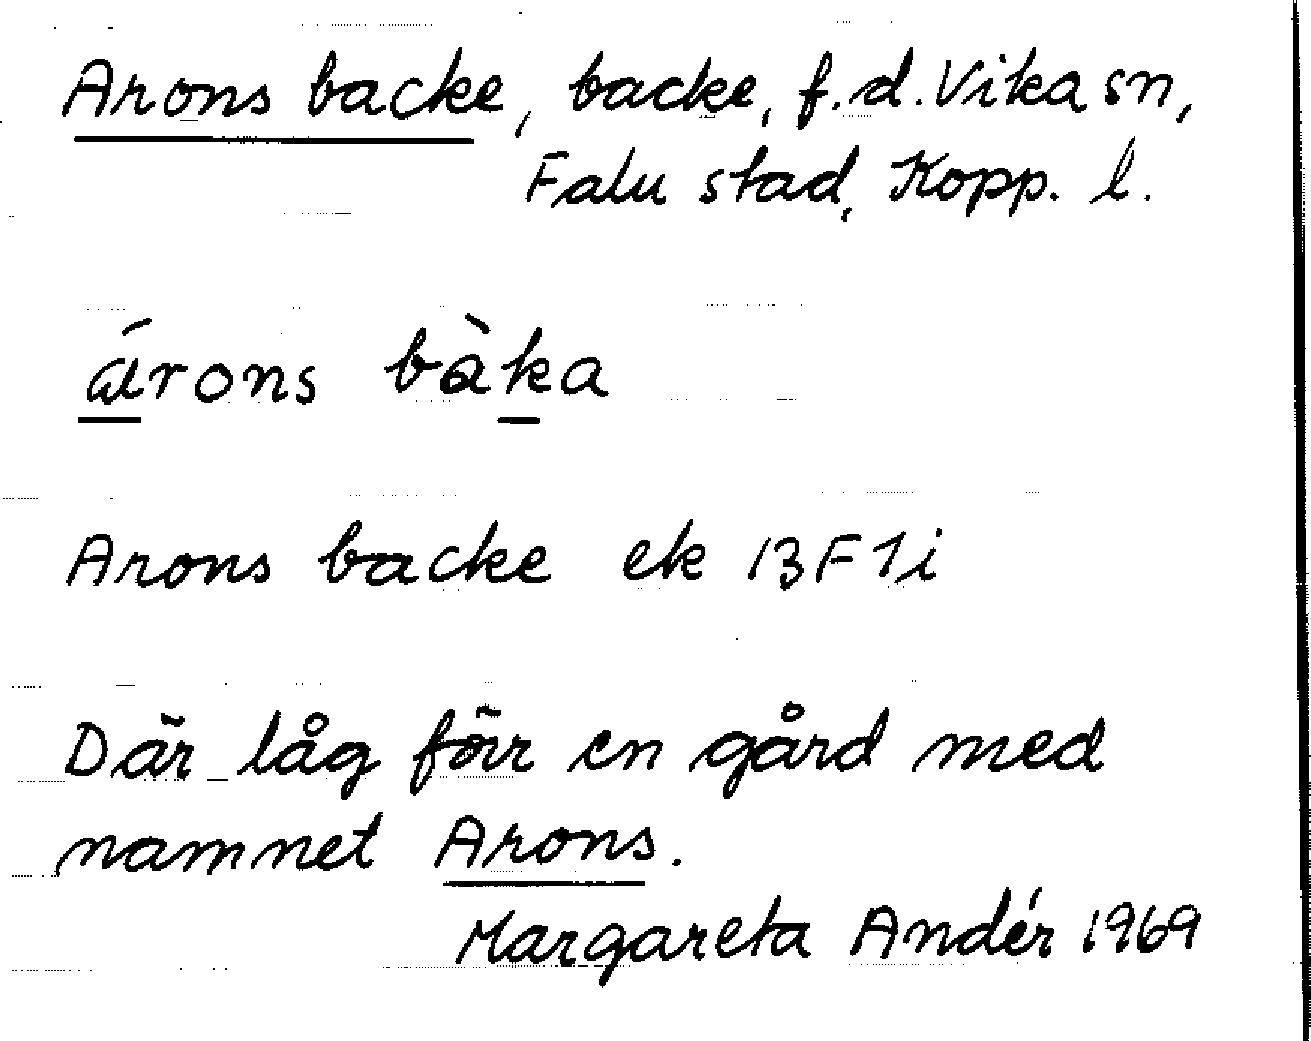 Arons backe, backe, f.d. Vika sn,
Falu stad, Kopp. l.
árons bàka
Arons backe ek 13F1i
Där låg förr en gård med
namnet Arons.
Margareta Andér 1969